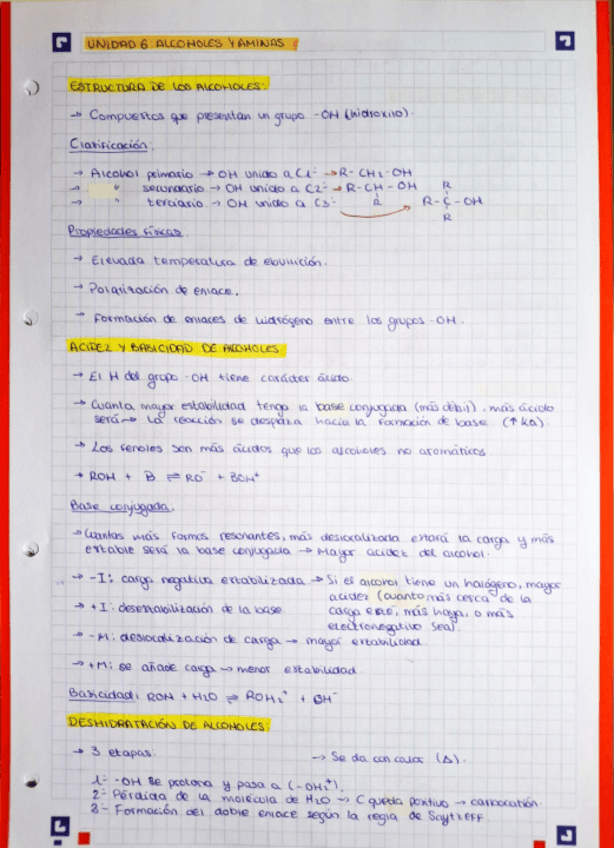 UNIDAD 6: ALCOHOLES Y AMINAS
ESTRUCTURA DE LOS ALCOHOLES:
→ Compuestos que presentan un grupo -OH (hidroxilo).
Clasificación:
→ Alcohol primario → OH unido a C1º → R-CH2-OH
→ " secundario → OH unido a C2º → R-CH-OH
R
→ " terciario → OH unido a C3º
R
R-C-OH
R
Propiedades físicas.
→ Elevada temperatura de ebullición.
→ Polarización de enlace.
→ Formación de enlaces de hidrógeno entre los grupos -OH.
ACIDEZ Y BASICIDAD DE ALCOHOLES
→ El H del grupo -OH tiene carácter ácido.
→ Cuanta mayor estabilidad tenga la base conjugada (más débil), más ácido
será → La reacción se desplaza hacia la formación de base. (↑Ka).
→ Los fenoles son más ácidos que los alcoholes no aromáticos.
→ ROH + B ⇌ RO⁻ +
Base conjugada:
→ Cuantas más formas resonantes, más deslocalizada estará la carga y más
estable será la base conjugada → Mayor acidez del alcohol.
→ -I: carga negativa estabilizada → Si el alcohol tiene un halógeno, mayor
acidez (cuanto más cerca de la
carga esté, más haya, o más
electronegativo sea).
→ +I: desestabilización de la base.
→ -M: deslocalización de carga → mayor estabilidad.
→ +M: se añade carga → menor estabilidad.
Basicidad: ROH + H2O ⇌ ROH2⁺ + OH⁻
DESHIDRATACIÓN DE ALCOHOLES:
→ 3 etapas: → Se da con calor (Δ).
1- -OH se protona y pasa a (-OH2⁺).
2- Pérdida de la molécula de H2O → C queda positivo → carbocatión.
3- Formación del doble enlace según la regla de Saytzeff.